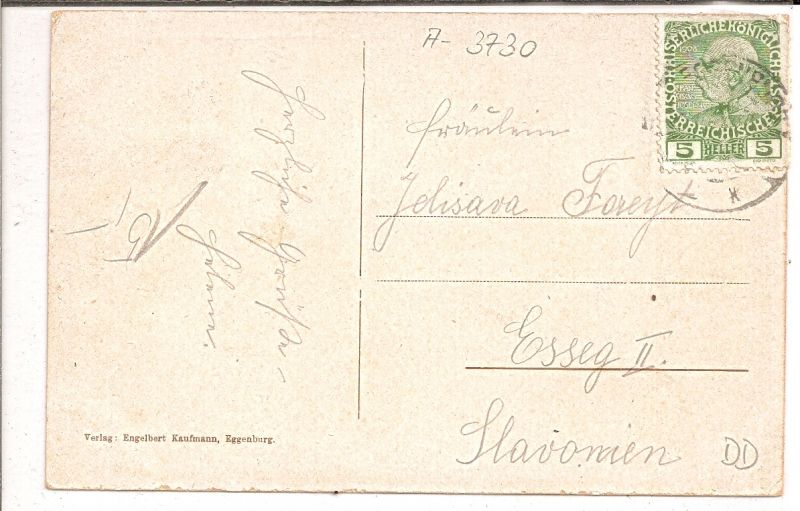 A- 3730
Herzliche Grüße -
Helene.
Fräulein
Jelisava Foreyt
Esseg II.
Slavonien
DD
Verlag: Engelbert Kaufmann, Eggenburg.
KAISERLICHE KÖNIGLICHE
ÖSTERREICHISCHE
1908
5 HELLER 5